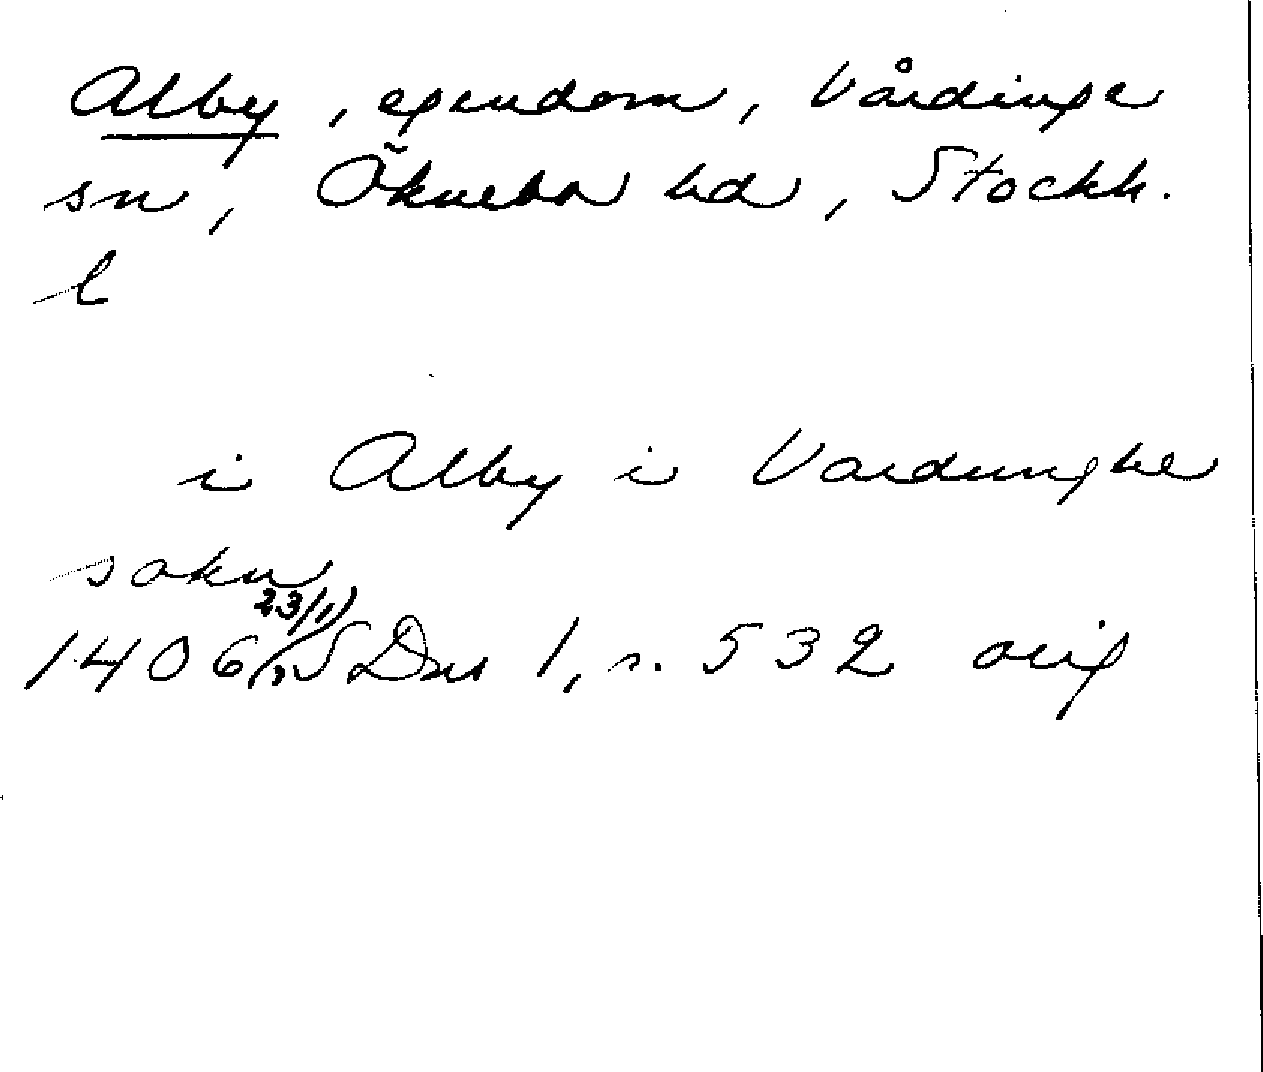 Alby, egendom, Vårdinge
sn, Öknebo hd, Stockh.
l
i Alby i Vardunghe
sokn
1406 23/1 SDns 1, s. 532 orig